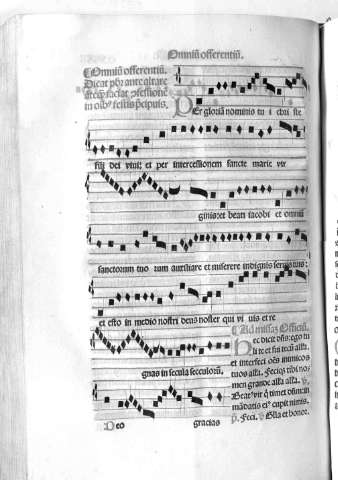 Omniū offerentiū.
¶Omniū offerentiū.
Dicat pbr ante altare
et faciat ꝓfessionē
in oībꝰ festis pcipuis.
Per gloriā nominis tu i christe
fili dei vivi: et per intercessionem sancte marie vir
ginis: et beati iacobi et omniū
sanctorum tuo rum auxiliare et miserere indignis servis tuis:
et esto in medio nostri deus noster qui vi uis et re
gnas in secula seculorū.
Deo gracias
¶Ad missaȝ Officiū.
Hec dicit dn̄s: ego tu
li te et fui tecū alla.
et interfeci oēs inimicos
tuos alla. Feciqȝ tibi no
men grande alla alla. ps.
Beatꝰ vir q̇ timet dominū
mādatis eiꝰ cupit nimis.
Feci. Glia et honoꝛe.